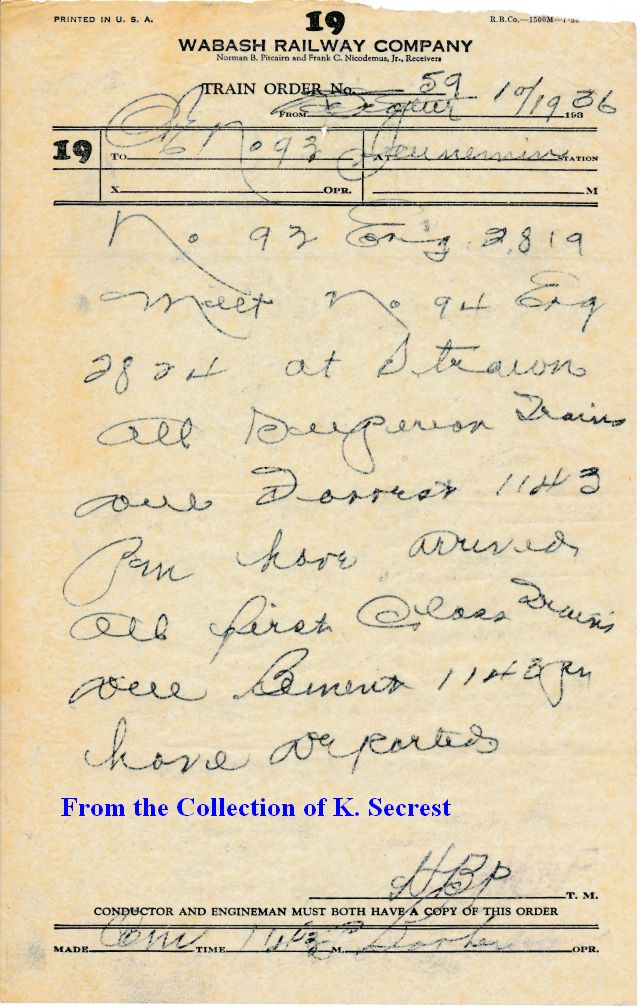 PRINTED IN U. S. A.
19
R.B.Co.—1500M—7-35
WABASH RAILWAY COMPANY
Norman B. Pitcairn and Frank C. Nicodemus, Jr., Receivers
TRAIN ORDER No. 59
FROM Decatur 10/19 1936
19
TO No 93 AT Saunemin STATION
X OPR. M
No 93 Eng 2819
Meet No 94 Eng
2824 at Strawn
All Superior Trains
due Forrest 1143
Pm have arrived
All first Class Trains
due Bement 1143 pm
have departed
From the Collection of K. Secrest
HBP T. M.
CONDUCTOR AND ENGINEMAN MUST BOTH HAVE A COPY OF THIS ORDER
MADE Com TIME M. OPR.